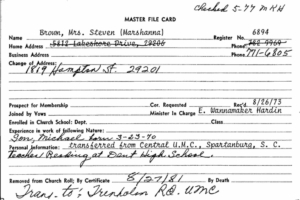 Checked 5-77 MKH
MASTER FILE CARD
Name Brown, Mrs. Steven (Marshanna) Register No. 6894
Home Address 5812 Lakeshore Drive, 29206 Phone 782-7960
Business Address Phone 771-6805
Change of Address:
1819 Hampton St. 29201
Prospect for Membership Cer. Requested Rec'd. 8/26/73
Joined by Vows Minister In Charge E. Wannamaker Hardin
Enrolled in Church School: Dept. Class
Experience in work of following Nature:
Son, Michael born 3-23-70
Personal Information: transferred from Central U.M.C., Spartanburg, S. C.
Teacher Reading at Dent High School.
Removed from Church Roll: By Certificate 8/27/81 By Death
Trans. to: Trenholm Rd. UMC